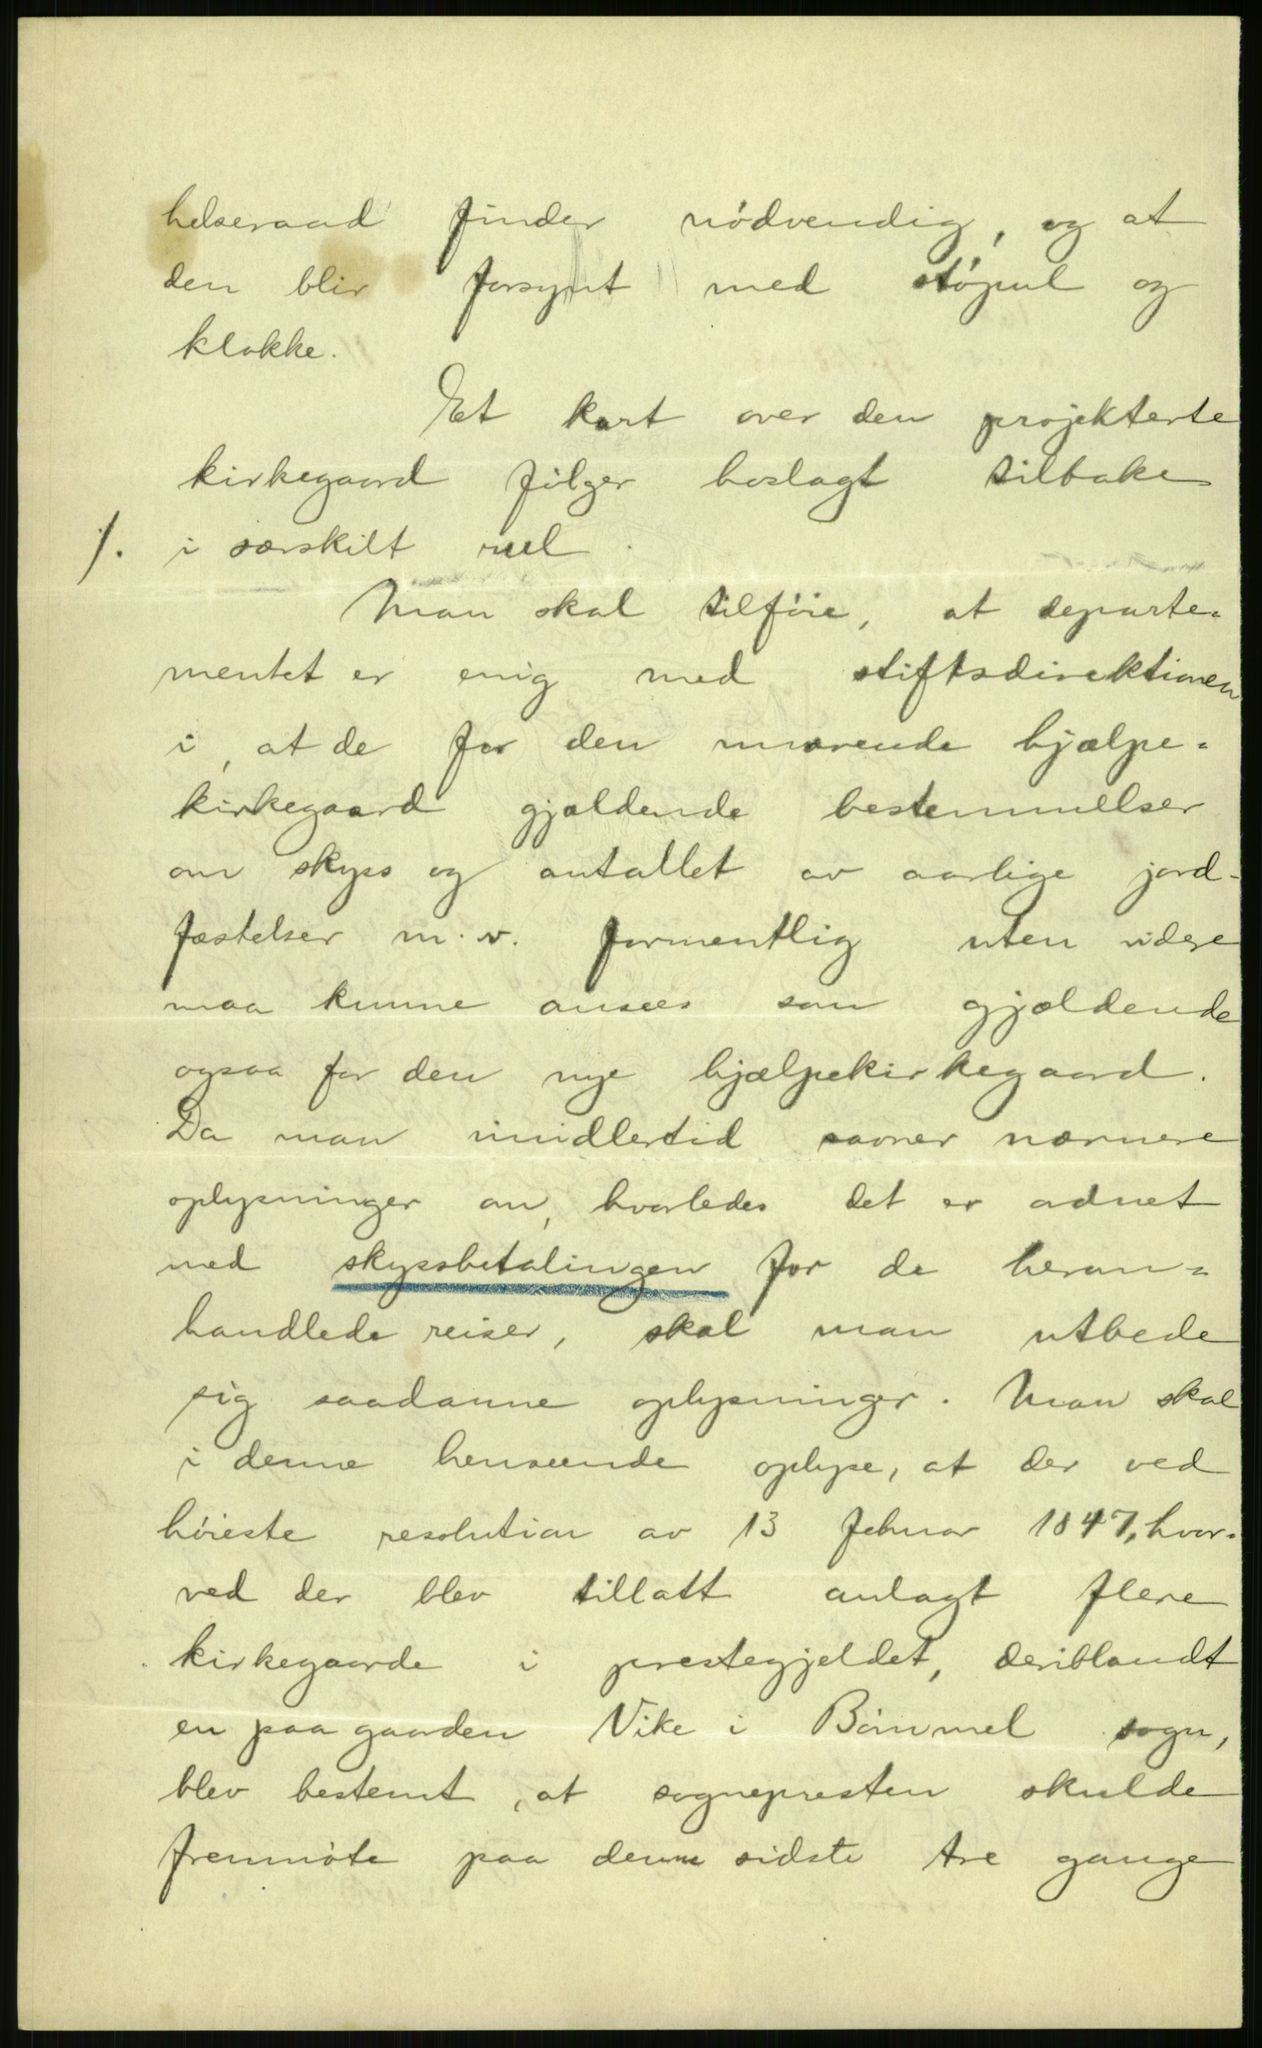 helseraad finder nødvendig, og at
den blir forsynt med støpul og
klokke.
Et kart over den projekterte
kirkegaard følger hoslagt tilbake
./. i særskilt rul.
Man skal tilføie, at departe-
mentet er enig med stiftsdirektionen
i, at de for den nuværende hjælpe-
kirkegaard gjældende bestemmelser
om skyss og antallet av aarlige jord-
fæstelser m.v. formentlig uten videre
maa kunne ansees som gjældende
ogsaa for den nye hjælpekirkegaard.
Da man imidlertid savner nærmere
oplysninger om, hvorledes det er ordnet
med skyssbetalingen for de herom-
handlede reiser, skal man utbede
sig saadanne oplysninger. Man skal
i denne henseende oplyse, at der ved
høieste resolution av 13 februar 1847, hvor-
ved der blev tillatt anlagt flere
kirkegaarde i prestegjeldet, deriblandt
en paa gaarden Vike i Bømmel sogn,
blev bestemt, at sognepresten skulde
fremmøte paa denne sidste tre gange